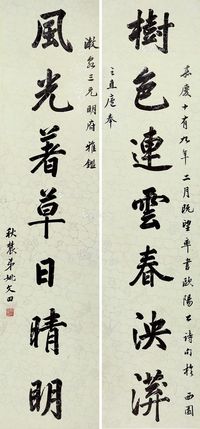 嘉慶十有九年二月既望率書歐陽公詩句於西園
樹色連雲春泱漭
之直廬奉
漱泉三兄明府雅鑑
風光着草日晴明
秋農弟姚文田